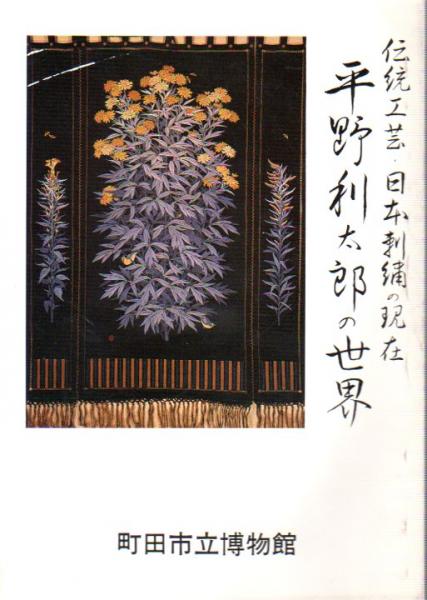 伝統工芸・日本刺繍の現在
平野利太郎の世界
町田市立博物館